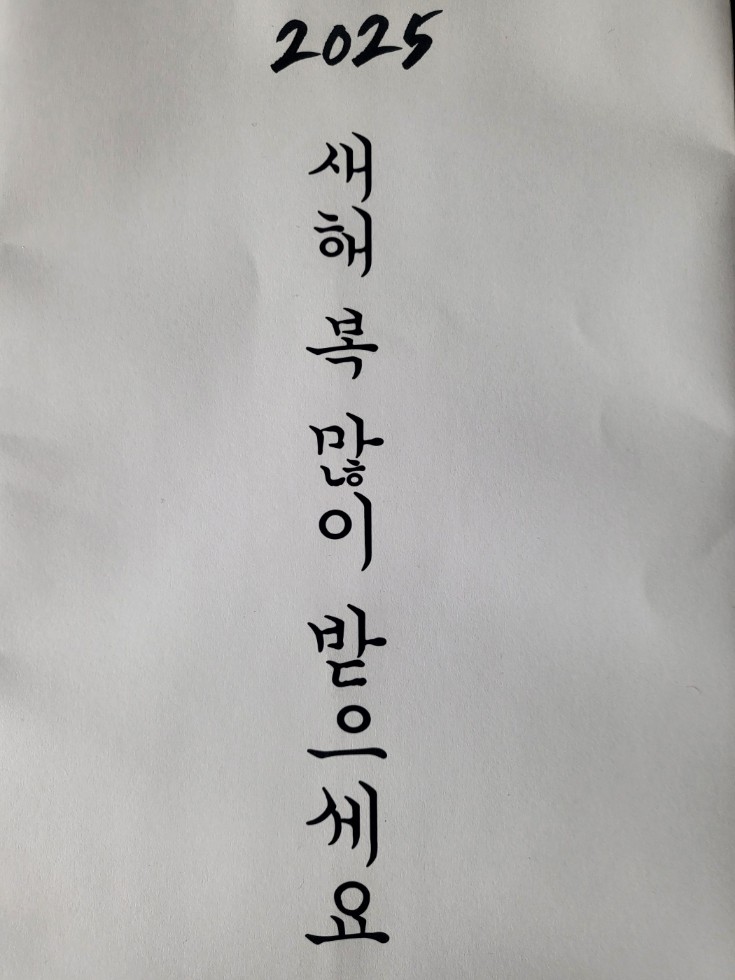 2025
새해 복 많이 받으세요